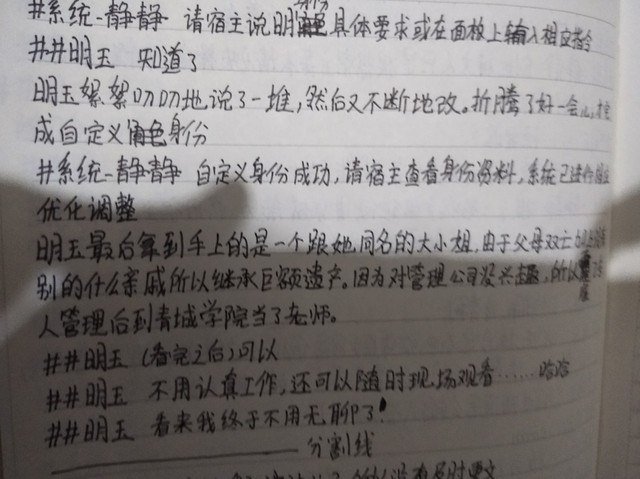 #系统-静静 请宿主说明身份具体要求或在面板上输入相应指令
##明玉 知道了
明玉絮絮叨叨地说了一堆,然后又不断地改。折腾了好一会儿,才完
成自定义角色身份
#系统-静静 自定义身份成功,请宿主查看身份资料,系统已进行相应
优化调整
明玉最后拿到手上的是一个跟她同名的大小姐,由于父母双亡
别的什么亲戚所以继承巨额遗产。因为对管理公司没兴趣,所以
人管理后到青城学院当了老师。
##明玉 (看完之后)可以
##明玉 不用认真工作,还可以随时现场观看……哈哈
##明玉 看来我终于不用无聊了!
分割线